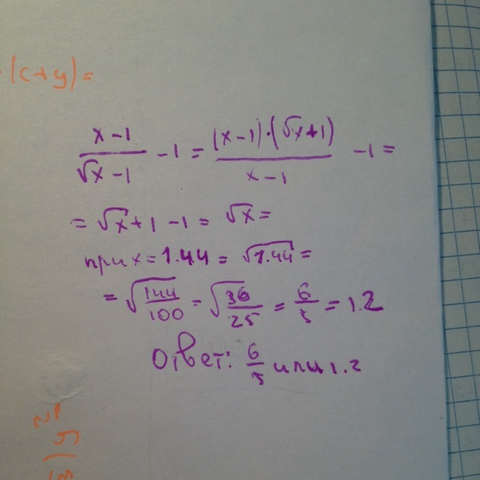 (x+y)=
x-1/√x-1 -1 = (x-1)·(√x+1)/x-1 -1=
= √x+1-1= √x=
при x=1.44= √1.44=
= √144/100 = √36/25 = 6/5 = 1.2
Ответ: 6/5 или 1.2